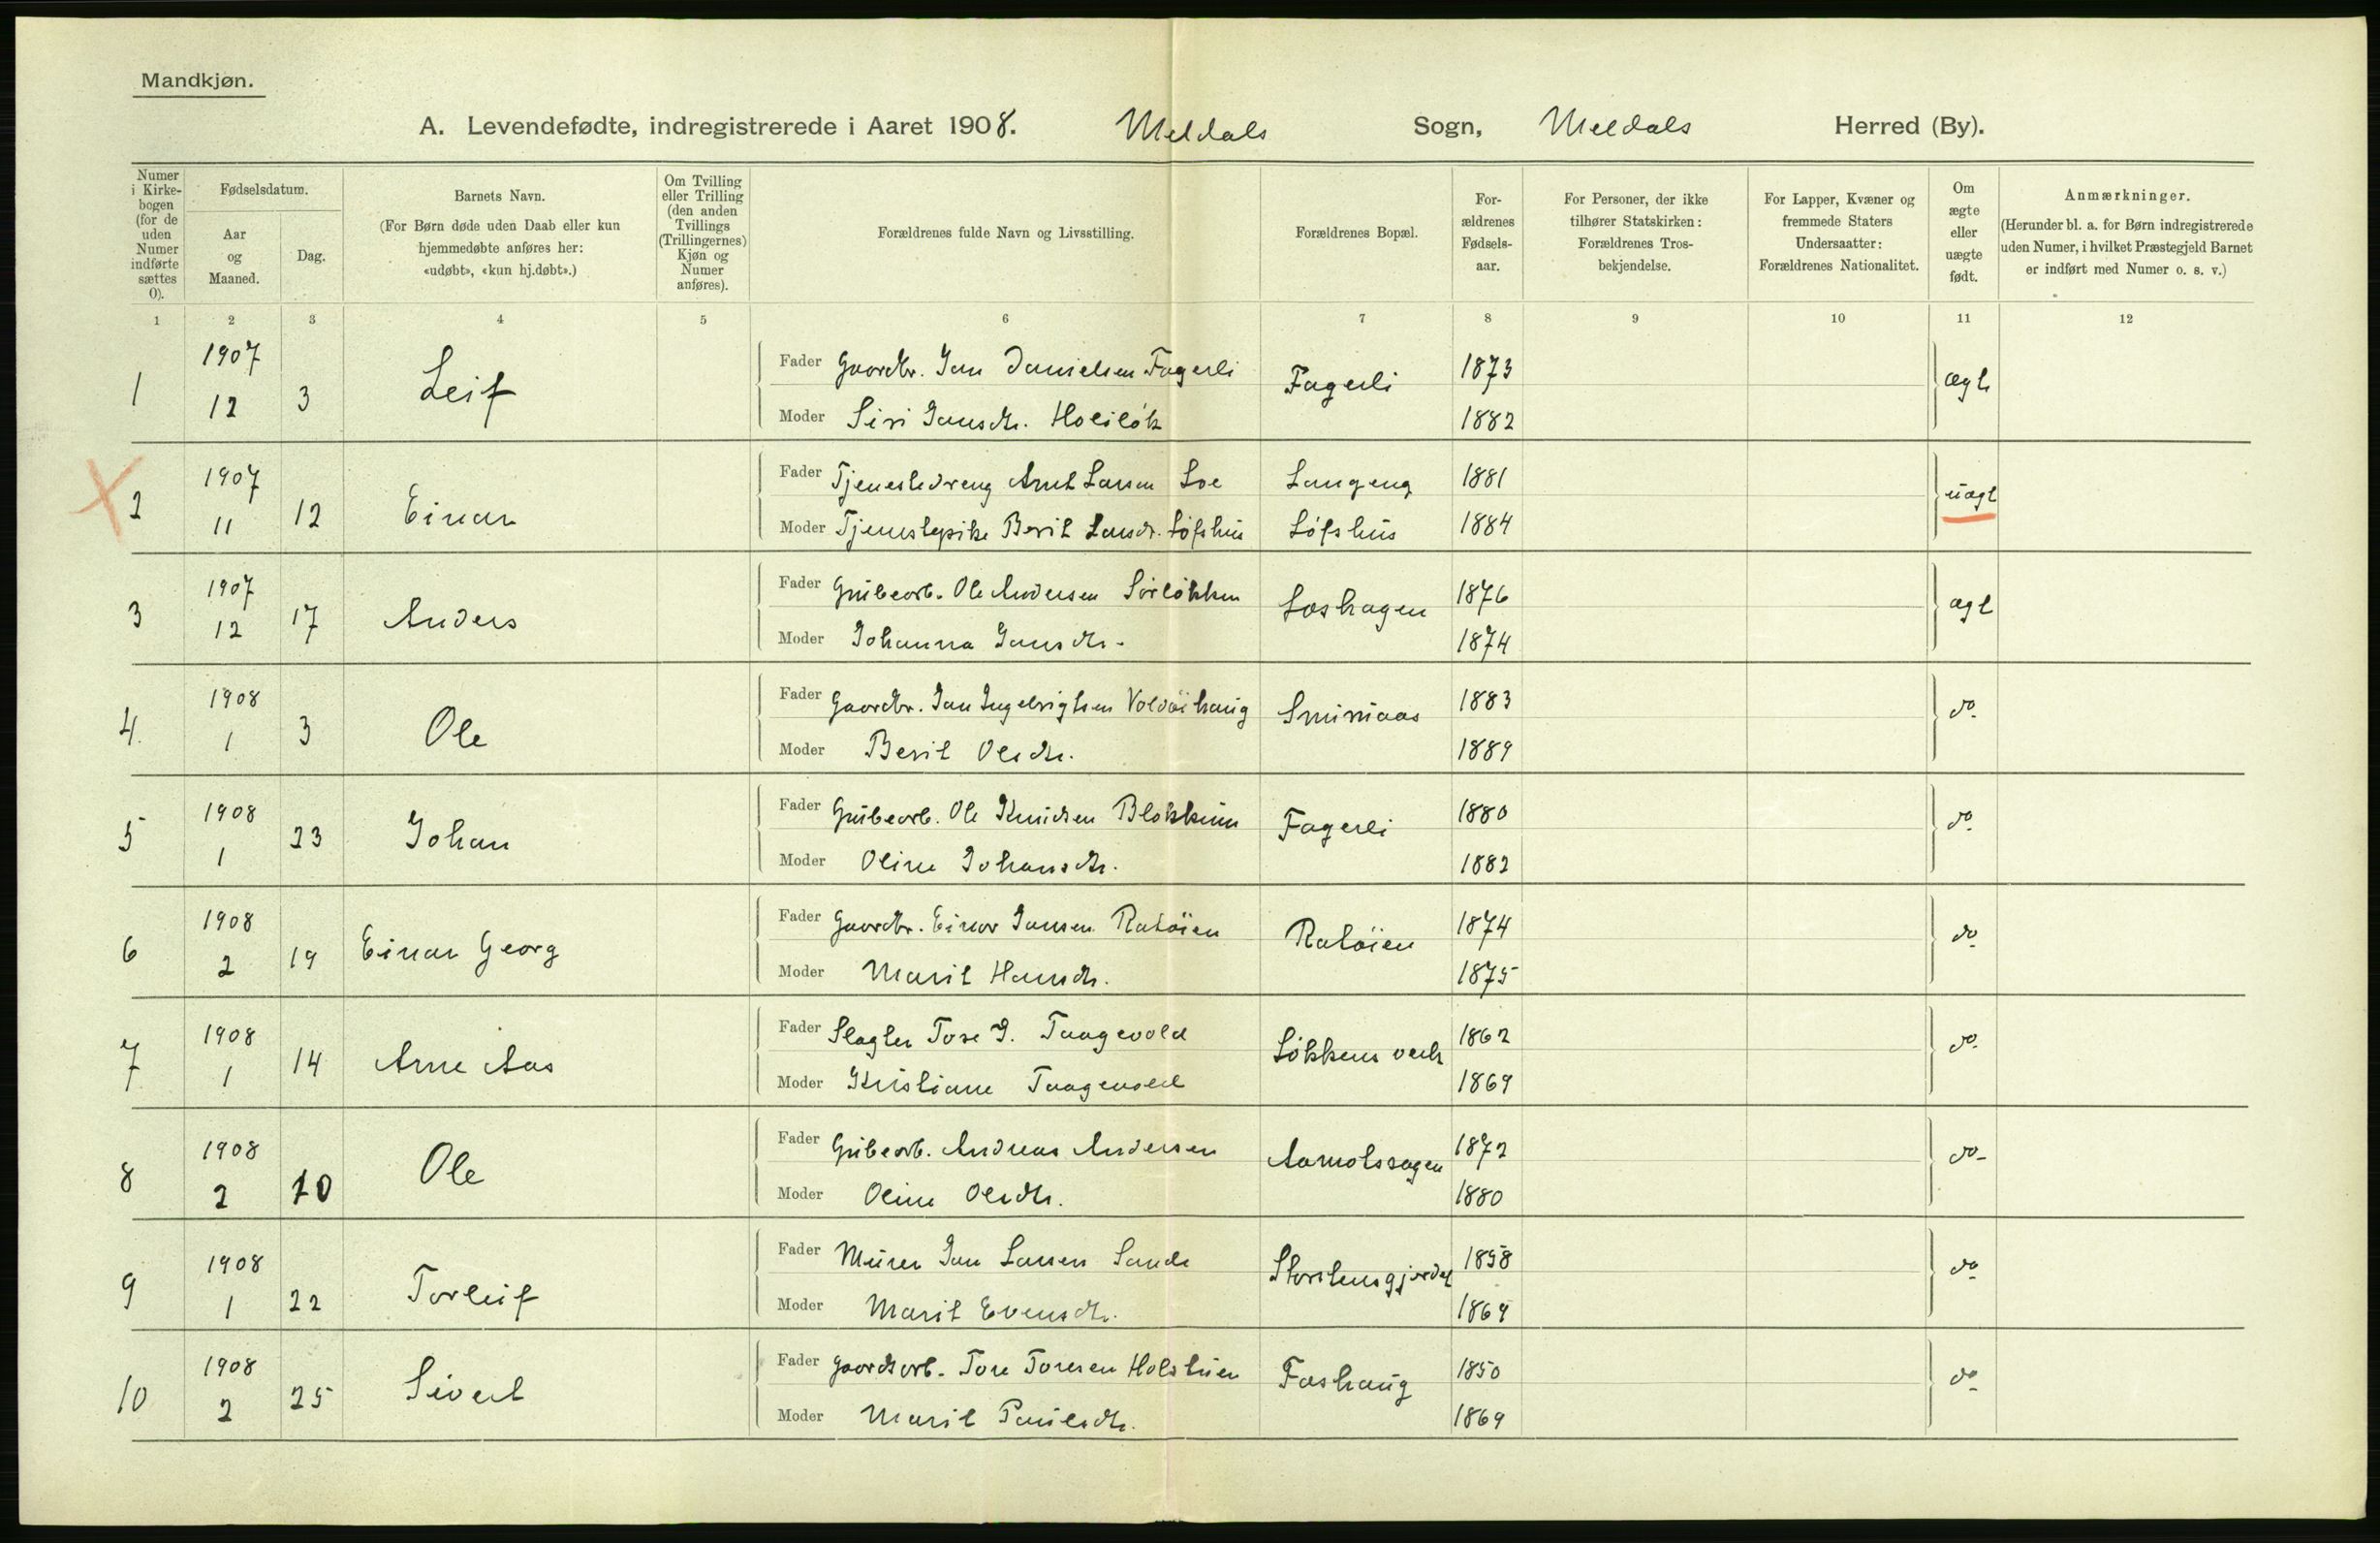 Mandkjøn.
A. Levendefødte, indregistrerede i Aaret 1908. Meldals Sogn, Meldals Herred (By).
Numer i Kirke-bogen (for de uden Numer indførte sættes 0).
Fødselsdatum.
Aar og Maaned.
Dag.
Barnets Navn.
(For Børn døde uden Daab eller kun hjemmedøbte anføres her: «udøbt», «kun hj.døbt».)
Om Tvilling eller Trilling (den anden Tvillings (Trillingernes) Kjøn og Numer anføres).
Forældrenes fulde Navn og Livsstilling.
Forældrenes Bopæl.
For-ældrenes Fødsels-aar.
For Personer, der ikke tilhører Statskirken: Forældrenes Tros-bekjendelse.
For Lapper, Kvæner og fremmede Staters Undersaatter: Forældrenes Nationalitet.
Om ægte eller uægte født.
Anmærkninger.
(Herunder bl. a. for Børn indregistrerede uden Numer, i hvilket Præstegjeld Barnet er indført med Numer o. s. v.)
1 2 3 4 5 6 7 8 9 10 11 12
1 1907 12 3 Leif Fader Gaardbr. Jon Danielsen Fagerli Fagerli 1873 ægt
Moder Siri Jonsdtr. Holiløk 1882
2 1907 11 12 Einar Fader Tjenestedreng Arnt Larsen Loe Langeng 1881 uægt
Moder Tjenestepike Berit Larsdr. Løfshus Løfshus 1884
3 1907 12 17 Anders Fader Grubearb. Ole Andersen Sørløkken Loshagen 1876 ægt
Moder Johanna Jonsdtr. 1874
4. 1908 1 3 Ole Fader Gaardbr. Jon Ingebrigtsen Voldøihaug 1883 do.
Moder Berit Olsdtr. 1889
5 1908 1 23 Johan Fader Grubearb. Ole Knudsen Blokkum Fagerli 1880 do.
Moder Oline Johansdtr. 1882
6 1908 2 19 Einar Georg Fader Gaardbr. Einar Jonsen Ratøien Ratøien 1874 do.
Moder Marit Hansdtr. 1875
7 1908 1 14 Arne Aas Fader Slagter Tore J. Taagevold Løkkens verk 1862 do.
Moder Kristiane Taagevold 1869
8 1908 2 10 Ole Fader Grubearb. Andreas Andersen 1872 do.
Moder Oline Olsdtr. 1880
9 1908 1 22 Torleif Fader Murer Jon Larsen Sande 1858 do.
Moder Marit Evensdtr. 1869
10 1908 2 25 Sivert Fader Gaardsarb. Tore Toresen Holstuen Foshaug 1850 do.
Moder Marit Paulsdtr. 1869